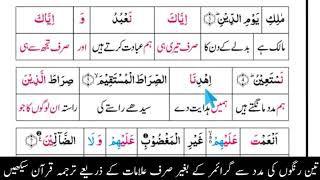 مٰلِكِ يَوْمِ الدِّيْنِ اِيَّاكَ نَعْبُدُ وَ اِيَّاكَ
مالک ہے بدلے کے دن کا صرف تیری ہی ہم عبادت کرتے ہیں اور صرف تجھ سے ہی
نَسْتَعِيْنُ اِهْدِنَا الصِّرَاطَ الْمُسْتَقِيْمَ صِرَاطَ الَّذِيْنَ
ہم مدد مانگتے ہیں ہمیں ہدایت دے سیدھے راستے کی راستہ ان لوگوں کا جو
اَنْعَمْتَ عَلَيْهِمْ غَيْرِ الْمَغْضُوْبِ عَلَيْهِمْ وَلَا الضَّآلِّيْنَ
تین رنگوں کی مدد سے گرائمر کے بغیر صرف علامات کے ذریعے ترجمہ قرآن سیکھیں